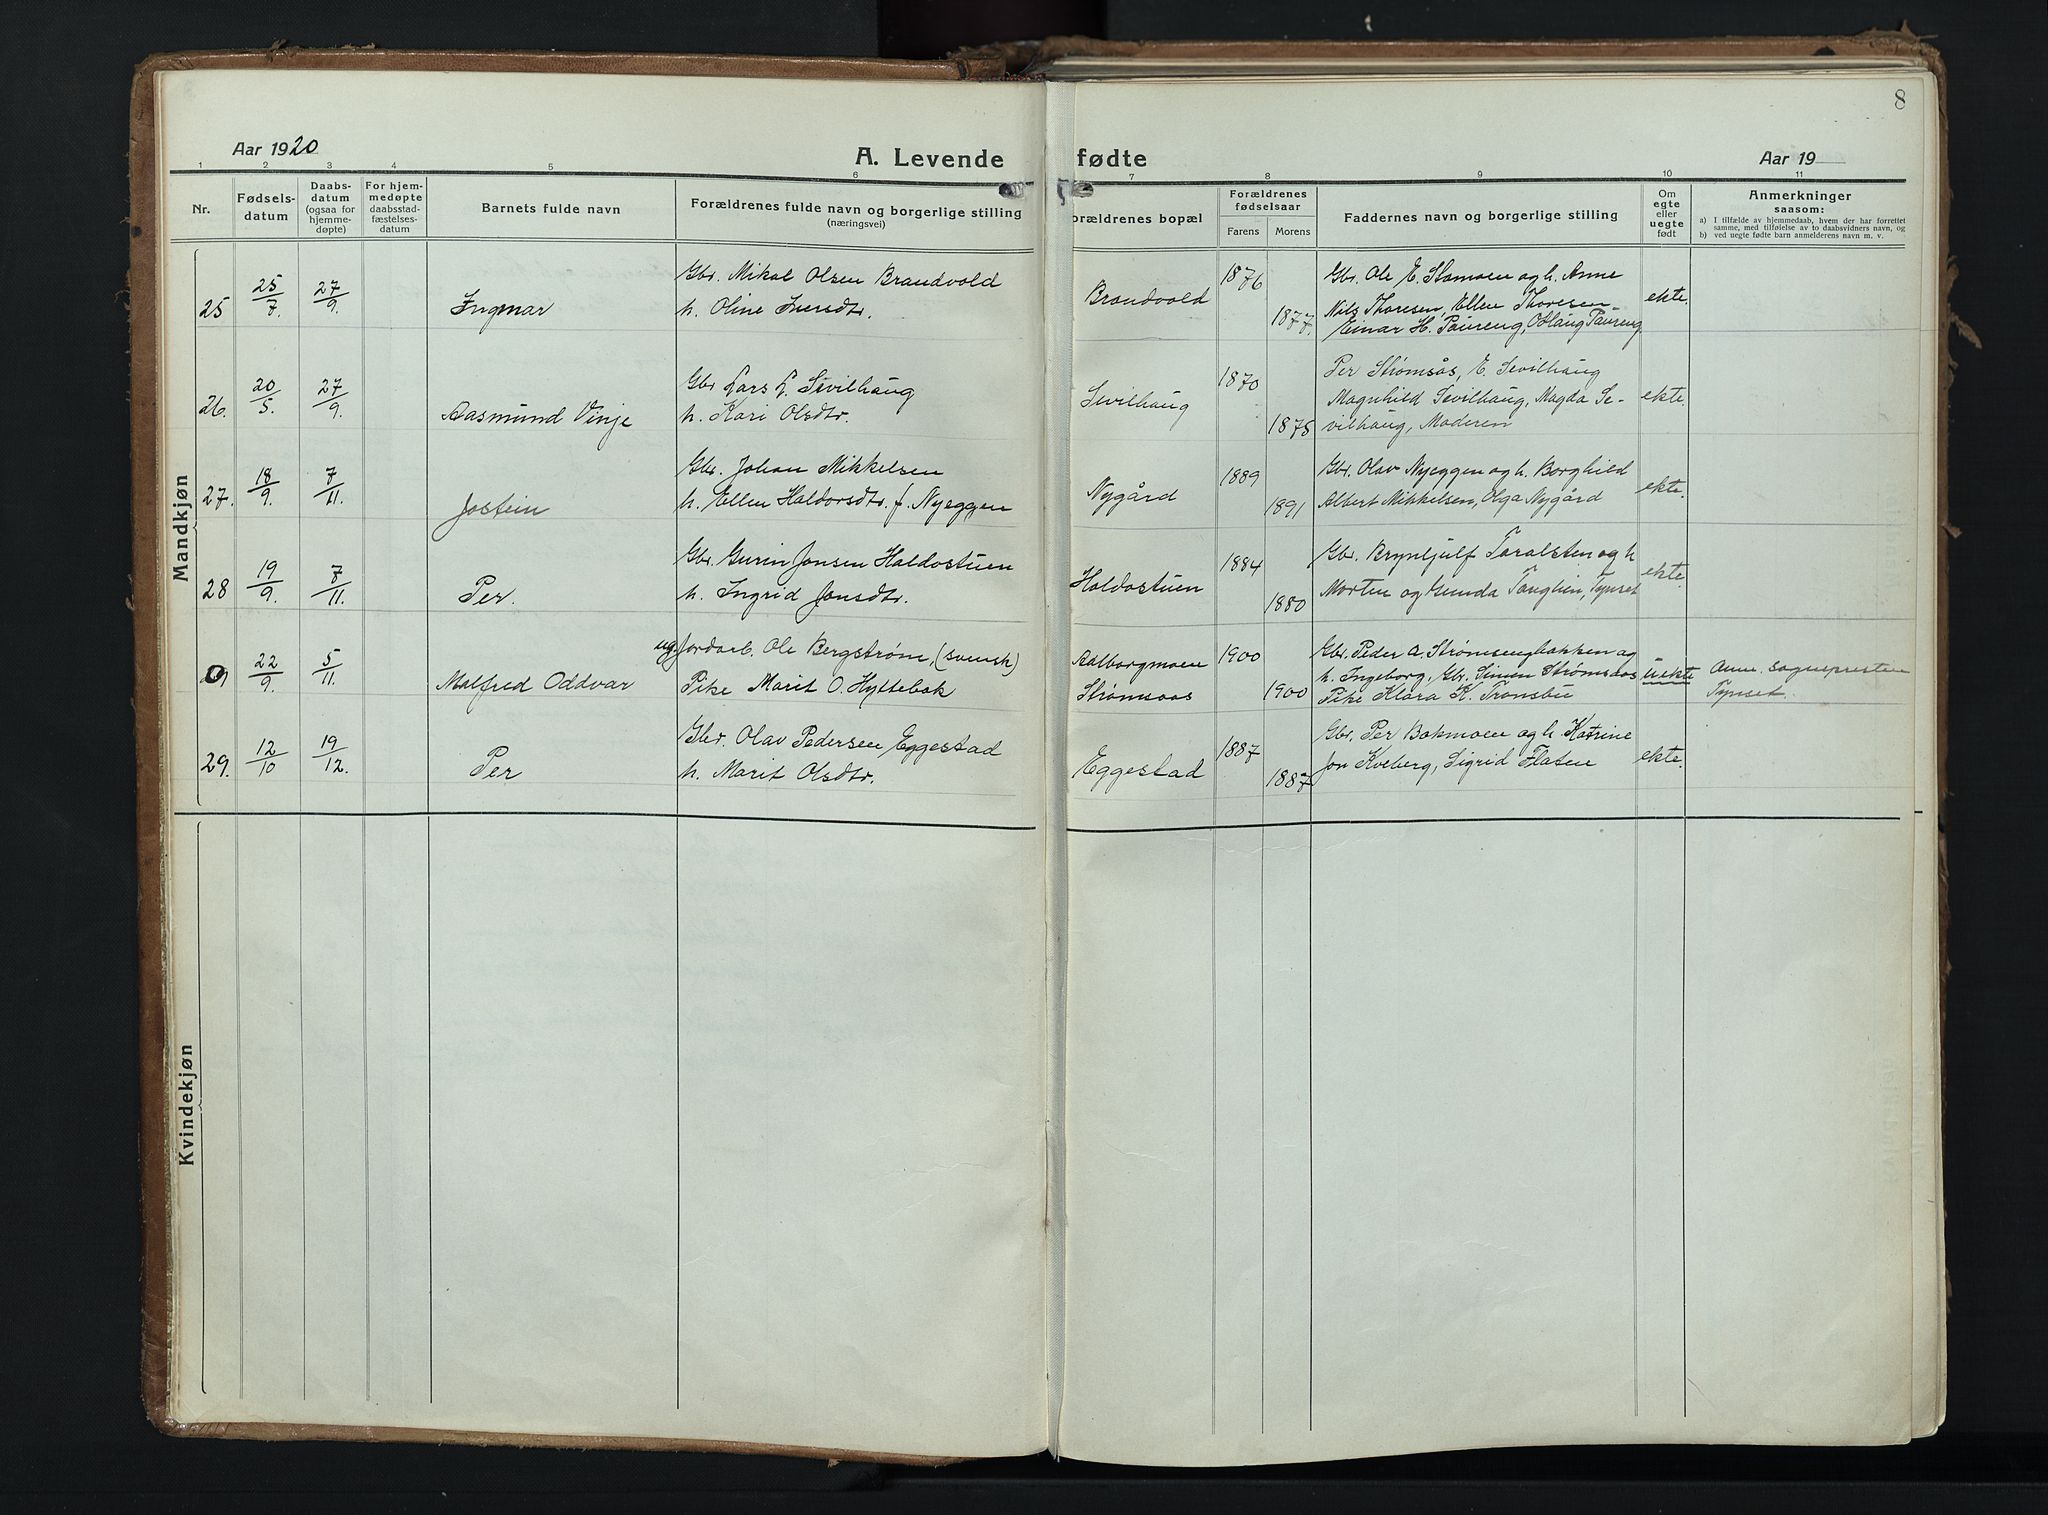 8
Aar 1920
A. Levende fødte
Aar 19
1 2 3 4 5 6 7 8 9 10 11
Nr.
Fødsels-
datum
Daabs-
datum
(ogsaa for
hjemme-
døpte)
For hjem-
medøpte
daabsstad-
fæstelses-
datum
Barnets fulde navn
Forældrenes fulde navn og borgerlige stilling
(næringsvei)
orældrenes bopæl
Forældrenes
fødselsaar
Farens
Morens
Faddernes navn og borgerlige stilling
Om
egte
eller
uegte
født
Anmerkninger
saasom:
a) I tilfælde av hjemmedaab, hvem der har forrettet
samme, med tilføielse av to daabsvidners navn, og
b) ved uegte fødte barn anmelderens navn m. v.
Mandkjøn
25 25/7 27/9. Ingmar
Gbr. Mikal Olsen Brandvold
h. Oline Iversdtr.
Brandvold 1876 1877.
Gbr. Ole E. Stamoen og h. Anne
Nils Thoresen, Ellen Thoresen
Einar H. Paureng, O Haug Paureng
ekte.
26. 20/5. 27/9. Aasmund Vinje
Gbr Lars L. Sevilhaug
h. Kari Olsdtr.
Sevilhaug 1870 1878
Per Strømsås, E. Sevilhaug
Magnhild Sevilhaug, Magda Se-
vilhaug, Moderen
ekte.
27. 18/9. 7/11. Jostein
Gbr. Johan Mikkelsen
h. Ellen Haldorsdtr. f. Nyeggen
Nygård 1889 1891
Gbr. Olav Nyeggen og h. Borghild
Albert Mikkelsen, Olga Nygård
ekte.
28 19/9. 7/11. Per.
Gbr. Gurin Jonsen Haldostuen
h. Ingrid Jonsdtr.
Haldostuen 1884 1880
Gbr. Brynhjulf Taralsten og h
Morten og Gunda Tanglien, Tynset
ekte.
22/9. 5/11. Malfred Oddvar
ug. Jordarb. Ole Bergstrøm, (svensk)
Pike Marit O. Hyttebak
Aalborgmoen
Strømsaas
1900 1900
Gbr. Peder A. Strømsengbakken og
h. Ingeborg, Gbr. Simen Strømsaas
Pike Klara K. Tronsbu
uekte
Anm. sognepresten
Tynset.
29. 12/10 19/12. Per
Gbr. Olav Pedersen Eggestad
h. Marit Olsdtr.
Eggestad 1887 1887
Gbr. Per Bakmoen og h. Katrine
Jon Kveberg, Sigrid Flaten
ekte.
Kvindekjøn